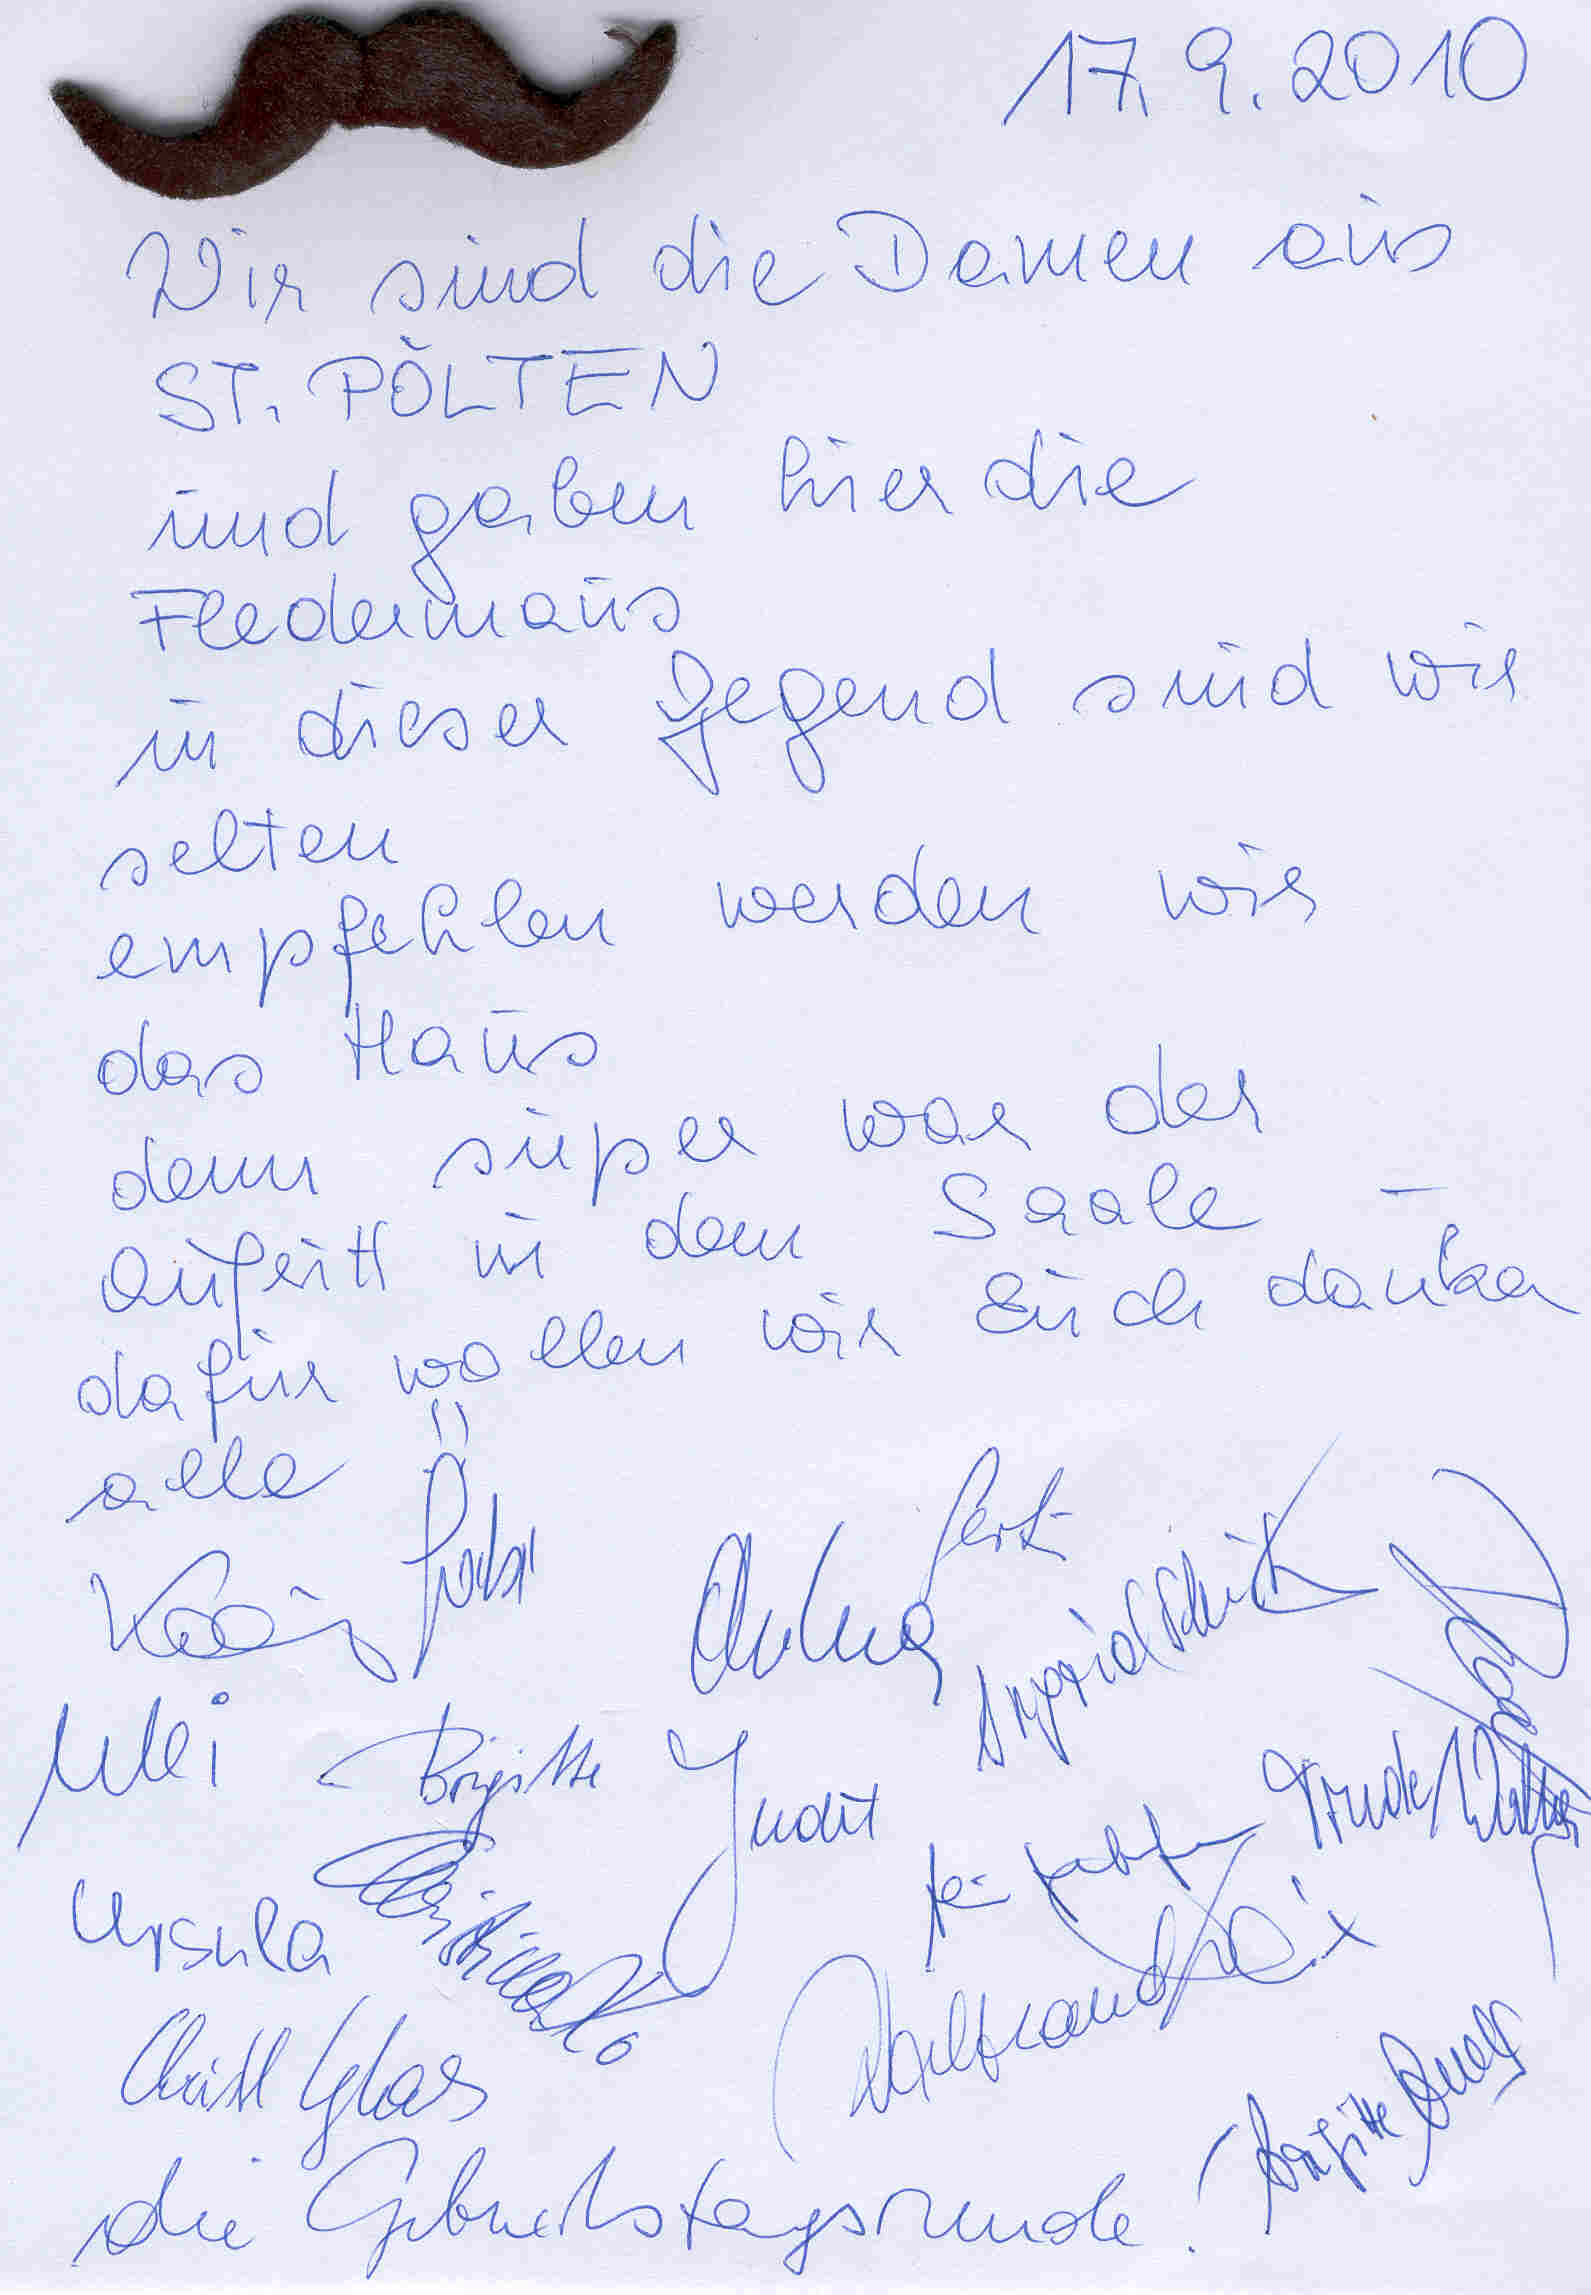 17.9.2010
Wir sind die Damen aus
ST. PÖLTEN
und gaben hier die
Fledermaus
in dieser Gegend sind wir
selten
empfehlen werden wir
das Haus
denn super war der
Aufritt in dem Saale –
dafür wollen wir Euch danken
alle !!
Gerti
Ingrid
Ulli Brigitte Judit
Trude
Ursula
Christl Glas
Brigitte
die Geburtstagsrunde!